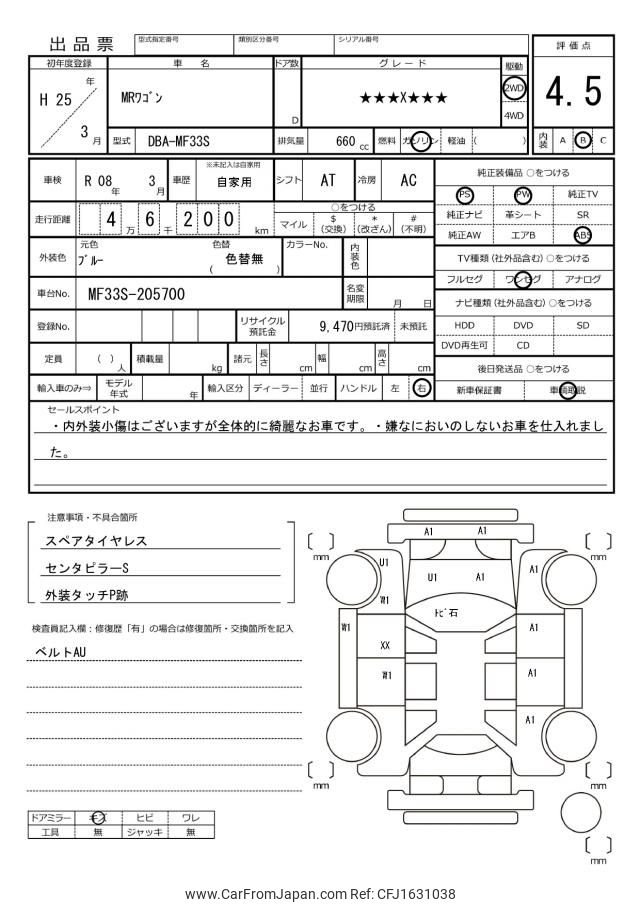 出品票 型式指定番号 類別区分番号 シリアル番号
評価点
4.5
内装 A B C
初年度登録 車名 ドア数 グレード 駆動
H 25 年 3 月
MRワゴン
D
★★★X★★★
2WD
4WD
型式 DBA-MF33S 排気量 660 cc 燃料 ガソリン 軽油 ( )
車検 R 08 年 3 月 車歴 ※未記入は自家用 自家用 シフト AT 冷房 AC
走行距離 4 6 万 千 2 0 0 km
○をつける
マイル $(交換) *(改ざん) #(不明)
外装色 元色 ブルー 色替 色替無 ( ) カラーNo. 内装色
車台No. MF33S-205700 名変期限 月 日
登録No. リサイクル預託金 9,470円預託済 未預託
定員 ( ) 人 積載量 kg 諸元 長さ cm 幅 cm 高さ cm
輸入車のみ⇒ モデル年式 年 輸入区分 ディーラー 並行 ハンドル 左 右
純正装備品 ○をつける
PS PW 純正TV
純正ナビ 革シート SR
純正AW エアB ABS
TV種類 (社外品含む) ○をつける
フルセグ ワンセグ アナログ
ナビ種類 (社外品含む) ○をつける
HDD DVD SD
DVD再生可 CD
後日発送品 ○をつける
新車保証書 車輌取説
セールスポイント
・内外装小傷はございますが全体的に綺麗なお車です。・嫌なにおいのしないお車を仕入れまし
た。
注意事項・不具合箇所
スペアタイヤレス
センタピラーS
外装タッチP跡
検査員記入欄:修復歴「有」の場合は修復箇所・交換箇所を記入
ベルトAU
ドアミラー キズ ヒビ ワレ
工具 無 ジャッキ 無
A1 A1
mm mm
U1 A1
U1 A1
W1
トビ石
W1 A1
XX
W1 A1
A1
mm mm
mm
www.CarFromJapan.com Ref: CFJ1631038